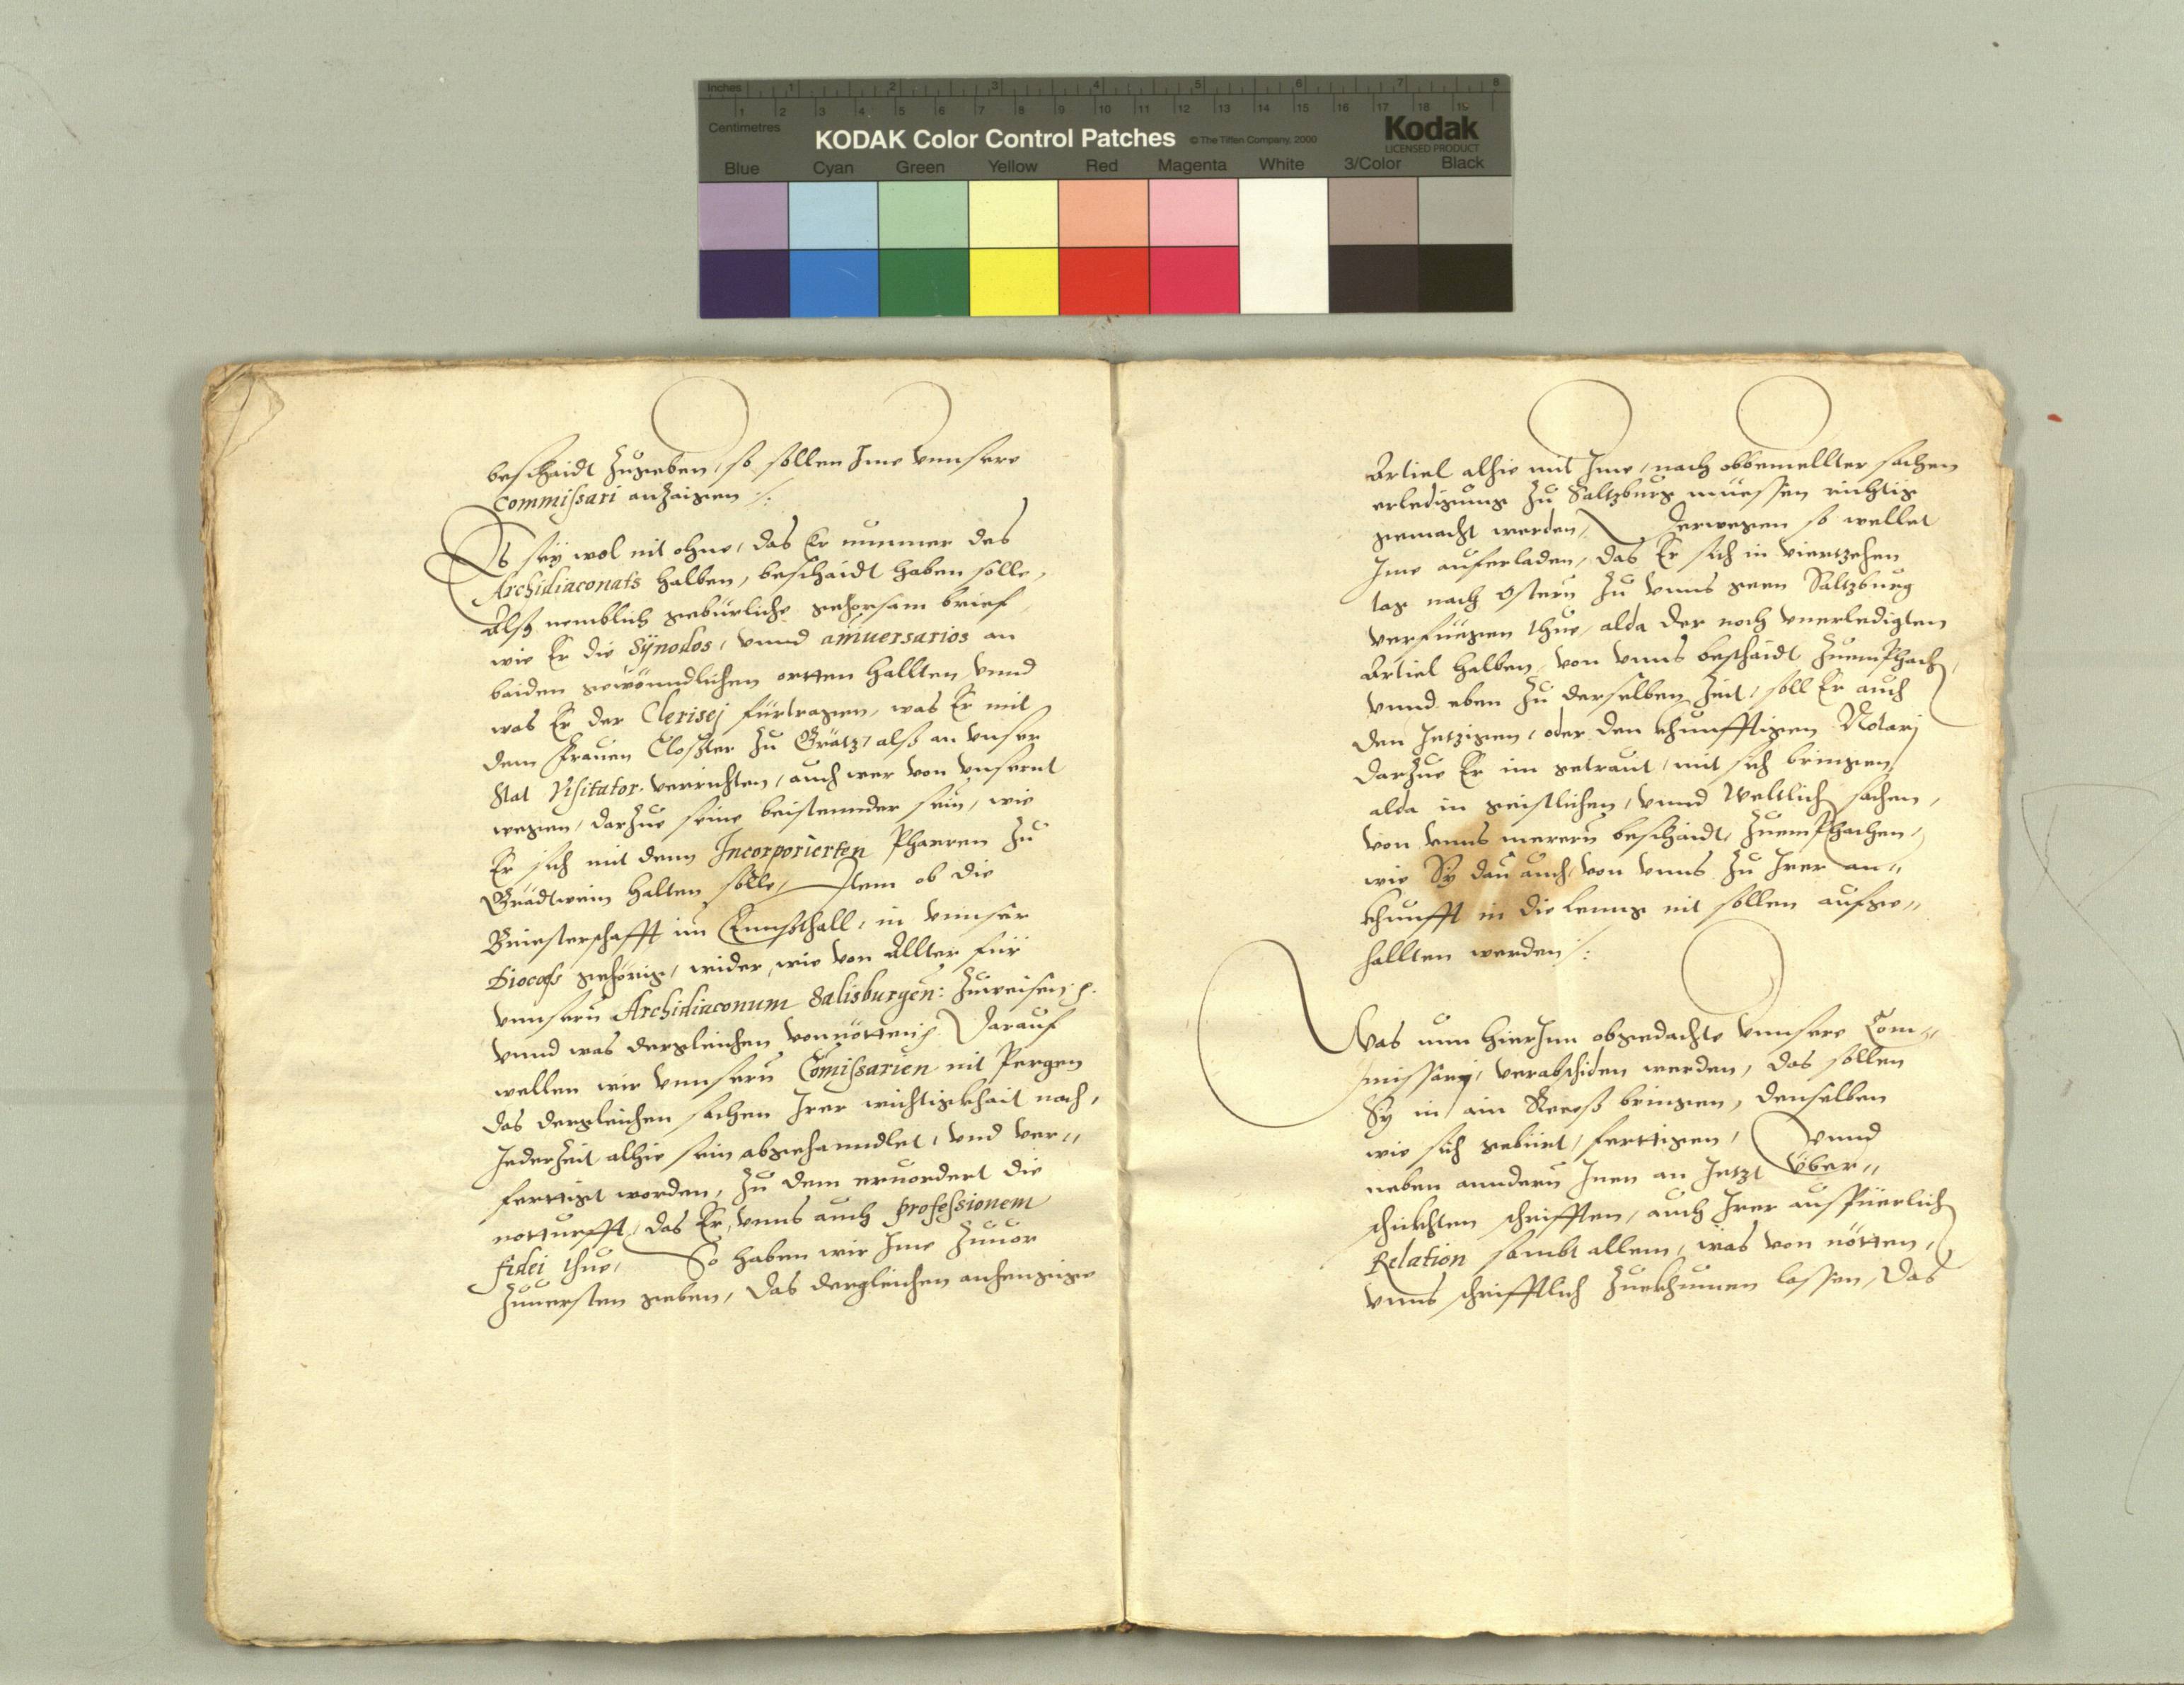 Inches 1 2 3 4 5 6 7 8
1 2 3 4 5 6 7 8 9 10 11 12 13 14 15 16 17 18 19
Centimetres
KODAK Color Control Patches © The Tiffen Company, 2000 Kodak
LICENSED PRODUCT
Blue Cyan Green Yellow Red Magenta White 3/Color Black
beschaidt zugeben, so sollen Ime vnnsere
Commissari anzaigen /:
Es seÿ wol nit ohne, das Er nunmer des
Archidiaconats halben, beschaidt haben solle,
Alß nemblich gebürliche gehorsam brief,
wie Er die Sÿnodos, vnnd anniuersarios an
baiden gewönndlichen ortten hallten, vnnd
was Er der Clerisej fürtragen, was Er mit
dem Frauen Closter zu Grätz, alß an vnser
stat Visitator verrichten, auch wer von vnsernt
wegen, darzue seine beistennder sein, wie
Er sich mit denn Incorporierten Pharren zu
Grädtwein halten solle, Item ob die
Briesterschafft im Ennßthall, in vnnser
Diocoes gehörig, wider, wie von Allter für
vnnsern Archidiaconum Salisburgen: zuweisen p.
vnnd was dergleichen vonnötten p Darauf
wellen wir vnnsern Comissarien nit Pergen
das dergleichen sachen Irer wichtigkhait nach,
Jederzeit alhie sein abgehanndlet, vnd ver„
ferttigt worden, zu dem eruordert die
notturfft, das Er, vnns auch professionem
fidei thue, So haben wir Ime zuuor
zuuersten geben, das dergleichen anhengige
Artiel alhie mit Ime, nach obbemellter sachen
erledigung zu Saltzburg müessen richtig
gemacht werden, Derwegen so wellet
Ime auferladen, das Er sich in viertzehen
tag nach Ostern zu vnns geen Saltzburg
verfuegen thue, alda der noch vnerledigten
Artiel halben, von vnns beschaidt zuemphach,
vnnd eben zu derselben Zeit, soll Er auch
den Jetzigen, oder den khunfftigen Notarj
darzue Er im getraut, mit sich bringen,
alda in geistlichen, vnnd Weltlich sachen,
von vnns merern beschaidt, zuemphachen,
wie Sÿ dan auch von vnns zu Irer an„
khunfft in die leng nit sollen aufge„
hallten werden /:
Was nun hierJnn obgedachte vnnsere Com„
missarÿ, verabschiden werden, das sollen
Sÿ in ain Receß bringen, denselben
wie sich gebürt, ferttigen, vnnd
neben anndern Inen an Jetzt über„
schickhten schrifften, auch Irer ausfüerlich
Relation sambt allem, was von nötten,
vnns schrifftlich zuekhumen lassen, das